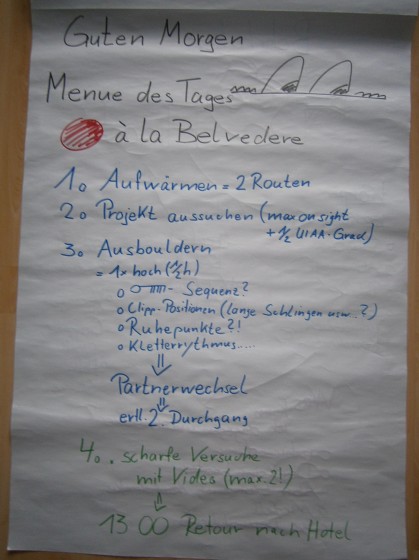 Guten Morgen
Menue des Tages
à la Belvedere
1. Aufwärmen = 2 Routen
2. Projekt aussuchen (max onsight
+ 1/2 UIAA-Grad)
3. Ausbouldern
= 1x hoch (1/2 h)
o - Sequenz?
o Clipp-Positionen (lange Schlingen usw..?)
o Ruhepunkte?!
o Kletterrythmus.....
⇓
Partnerwechsel
⇓
evtl. 2. Durchgang
4. . scharfe Versuche
mit Video (max. 2!)
⇓
13 00 Retour nach Hotel